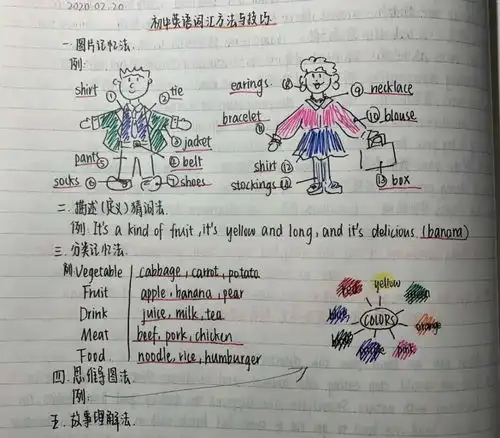 2020.02.20
初中英语词汇方法与技巧
一.图片记忆法.
例:
shirt ① ② tie
③ jacket
pants ⑤ ④ belt
socks ⑥ ⑦ shoes
earings ⑧ ⑨ necklace
bracelet ⑪ ⑩ blouse
shirt ⑫
stockings ⑭ ⑬ box
二.描述(定义)猜词法.
例: It's a kind of fruit, it's yellow and long, and it's delicious. (banana)
三.分类记忆法.
例: Vegetable cabbage, carrot, potato
Fruit apple, banana, pear
Drink juice, milk, tea
Meat beef, pork, chicken
Food. noodle, rice, humburger
red yellow
COLORS orange
pink
四.思维导图法.
例:
五.故事理解法.